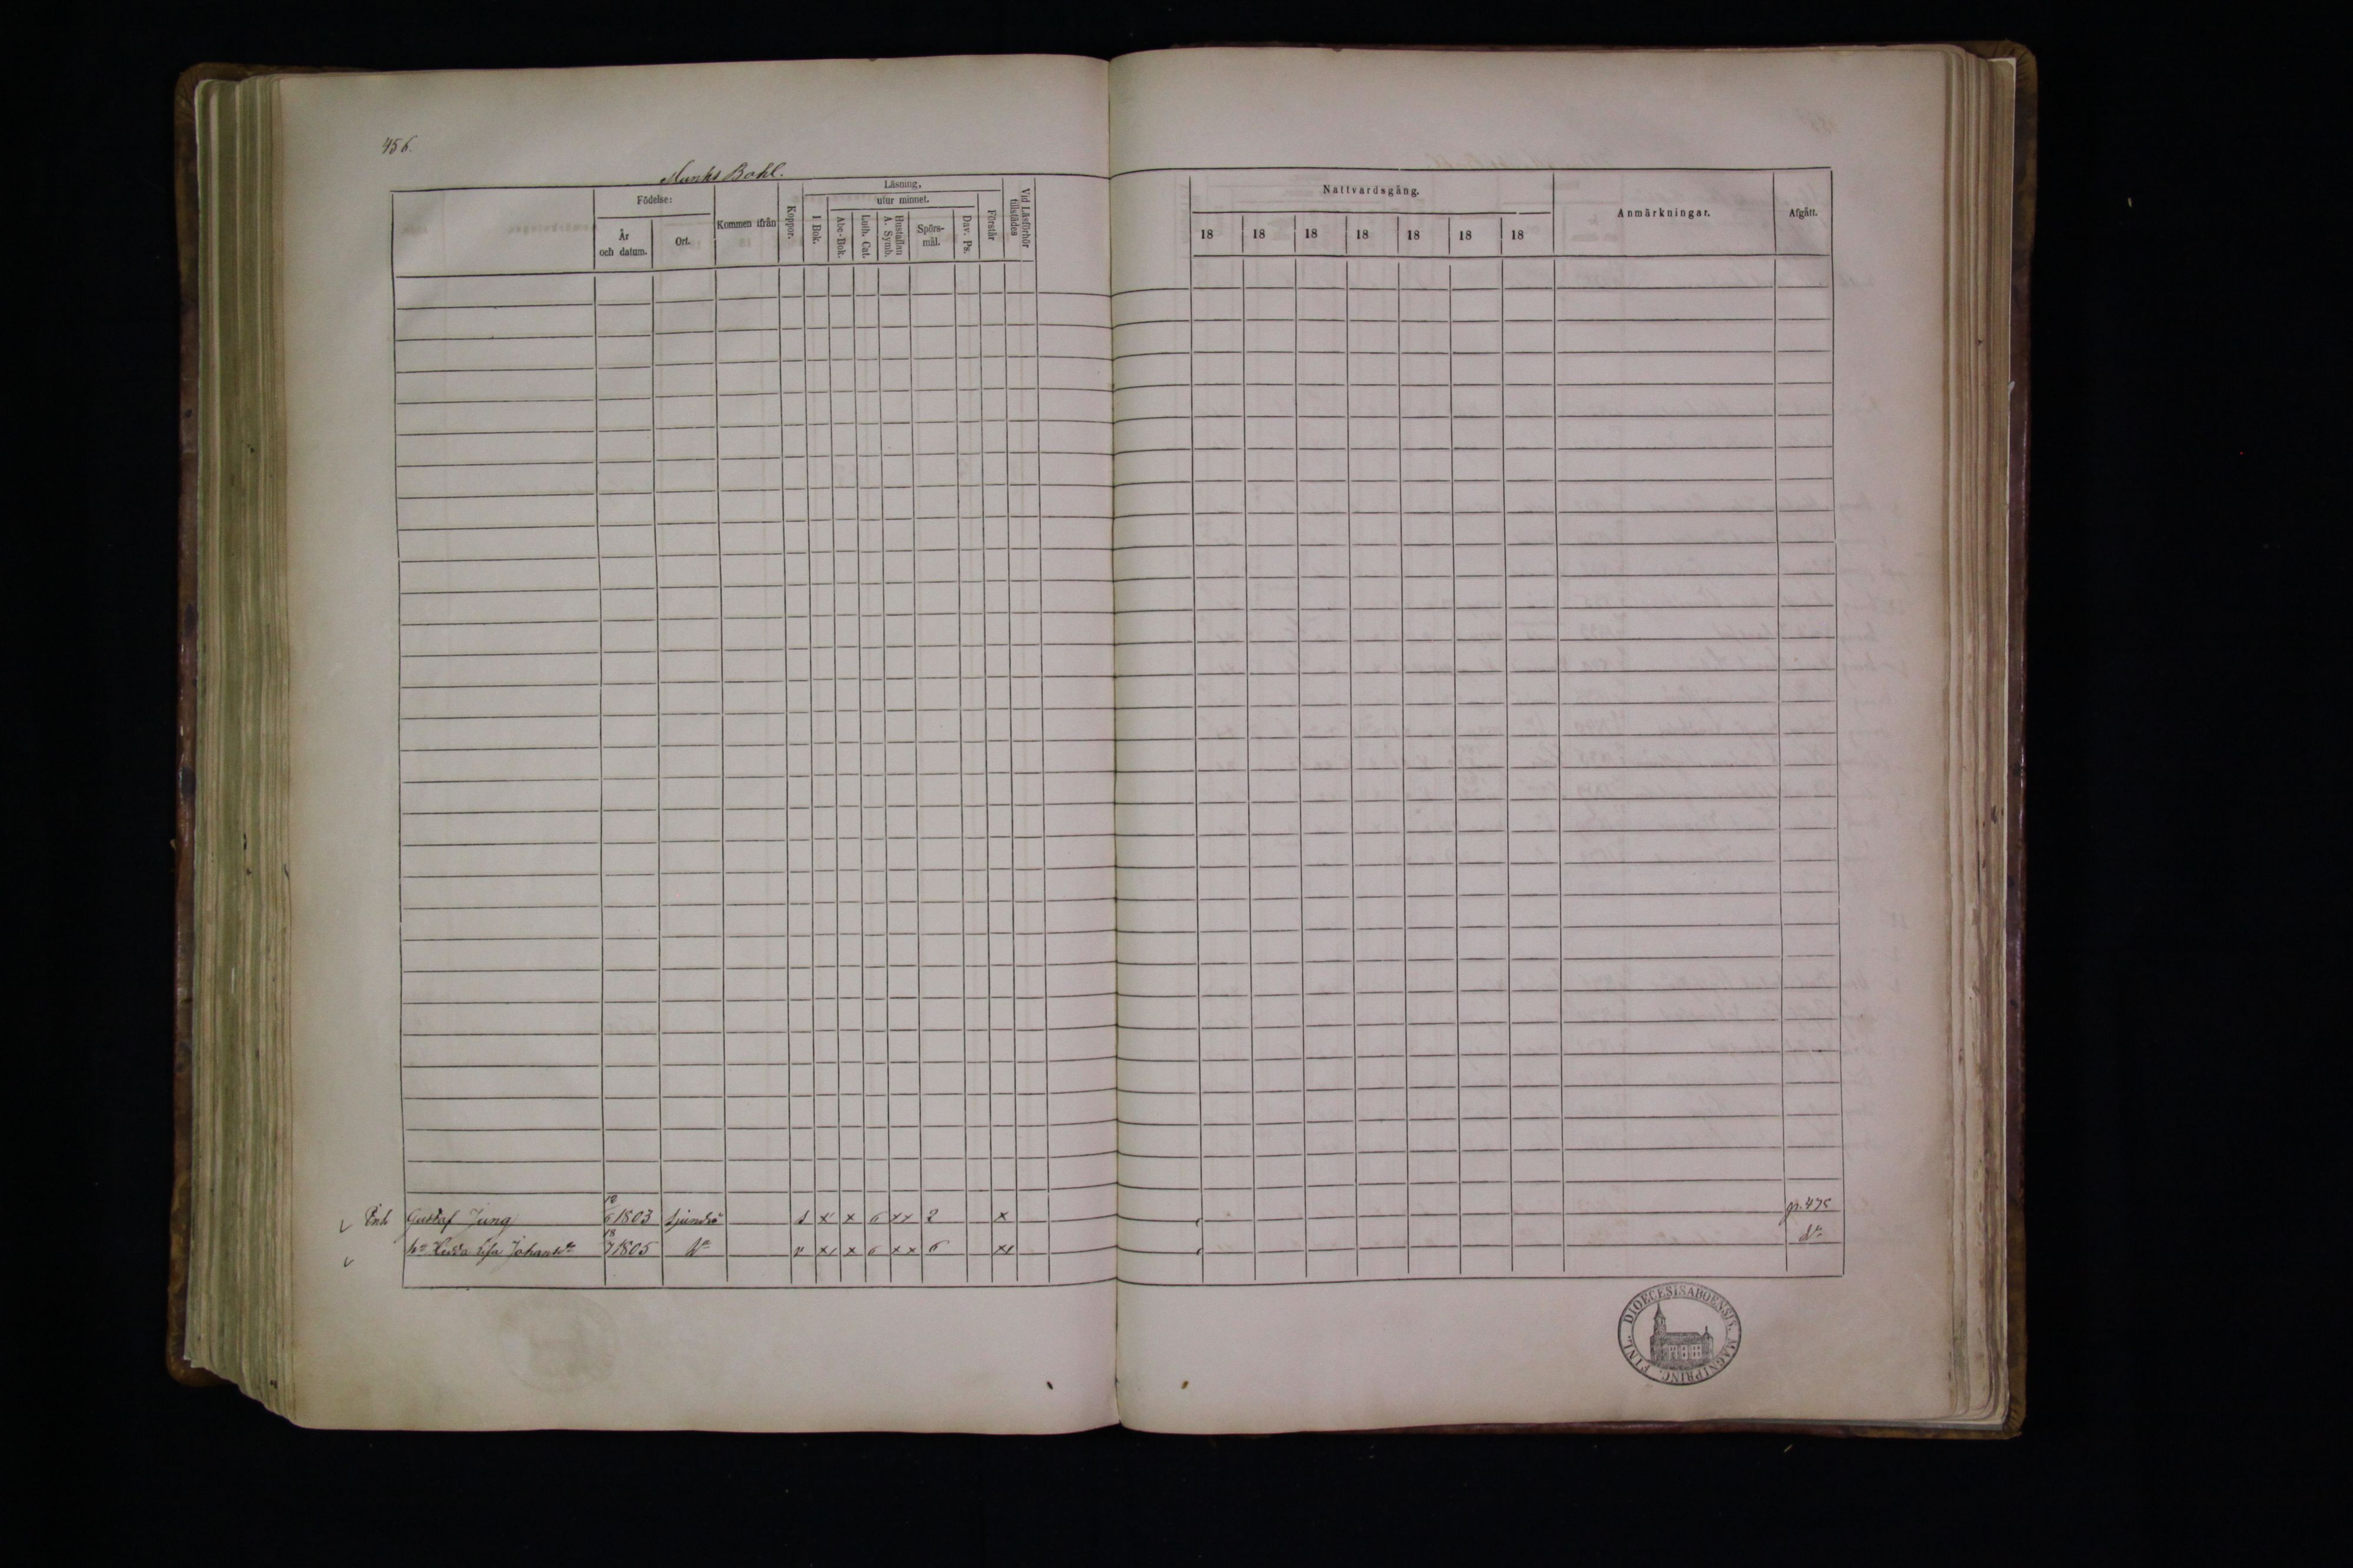 456.
Munks Bohl.
Födelse:
År och datum.
Ort.
Kommen ifrån
Koppor.
Läsning,
I Bok.
utur minnet.
Abc-Bok.
Luth. Cat.
Hustaflan A. Symb.
Spörsmål.
Dav. Ps.
Förstår
Vid Läsförhör tillstädes
Nattvardsgång.
18 18 18 18 18 18 18
Anmärkningar.
Afgått.
Enk Gustaf Jung 12/6 1803 Sjundeå x x 6 xx 2 x p. 475
Hedda Lisa Johansdr 18/7 1805 Do v xx x 6 xx 6 xx Do
FINL. DIOECESIS ABOENSIS. MAGNI PRINC.